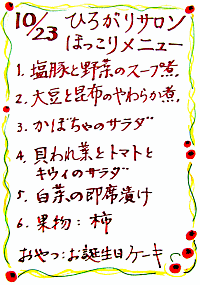 10/23 ひろがりサロン
ほっこりメニュー
1. 塩豚と野菜のスープ煮
2. 大豆と昆布のやわらか煮
3. かぼちゃのサラダ
4. 貝われ菜とトマトと
キウイのサラダ
5. 白菜の即席漬け
6. 果物:柿
おやつ:お誕生日ケーキ